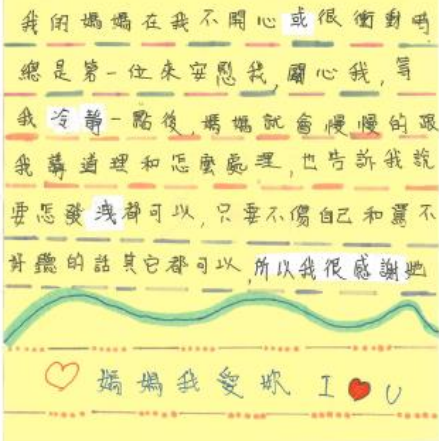 我的媽媽在我不開心或很衝動時
總是第一位來安慰我,關心我,等
我冷靜一點後,媽媽就會慢慢的跟
我講道理和怎麼處理,也告訴我說
要怎發洩都可以,只要不傷自己和罵不
好聽的話其它都可以,所以我很感謝她
♡ 媽媽我愛妳 I ♥ U